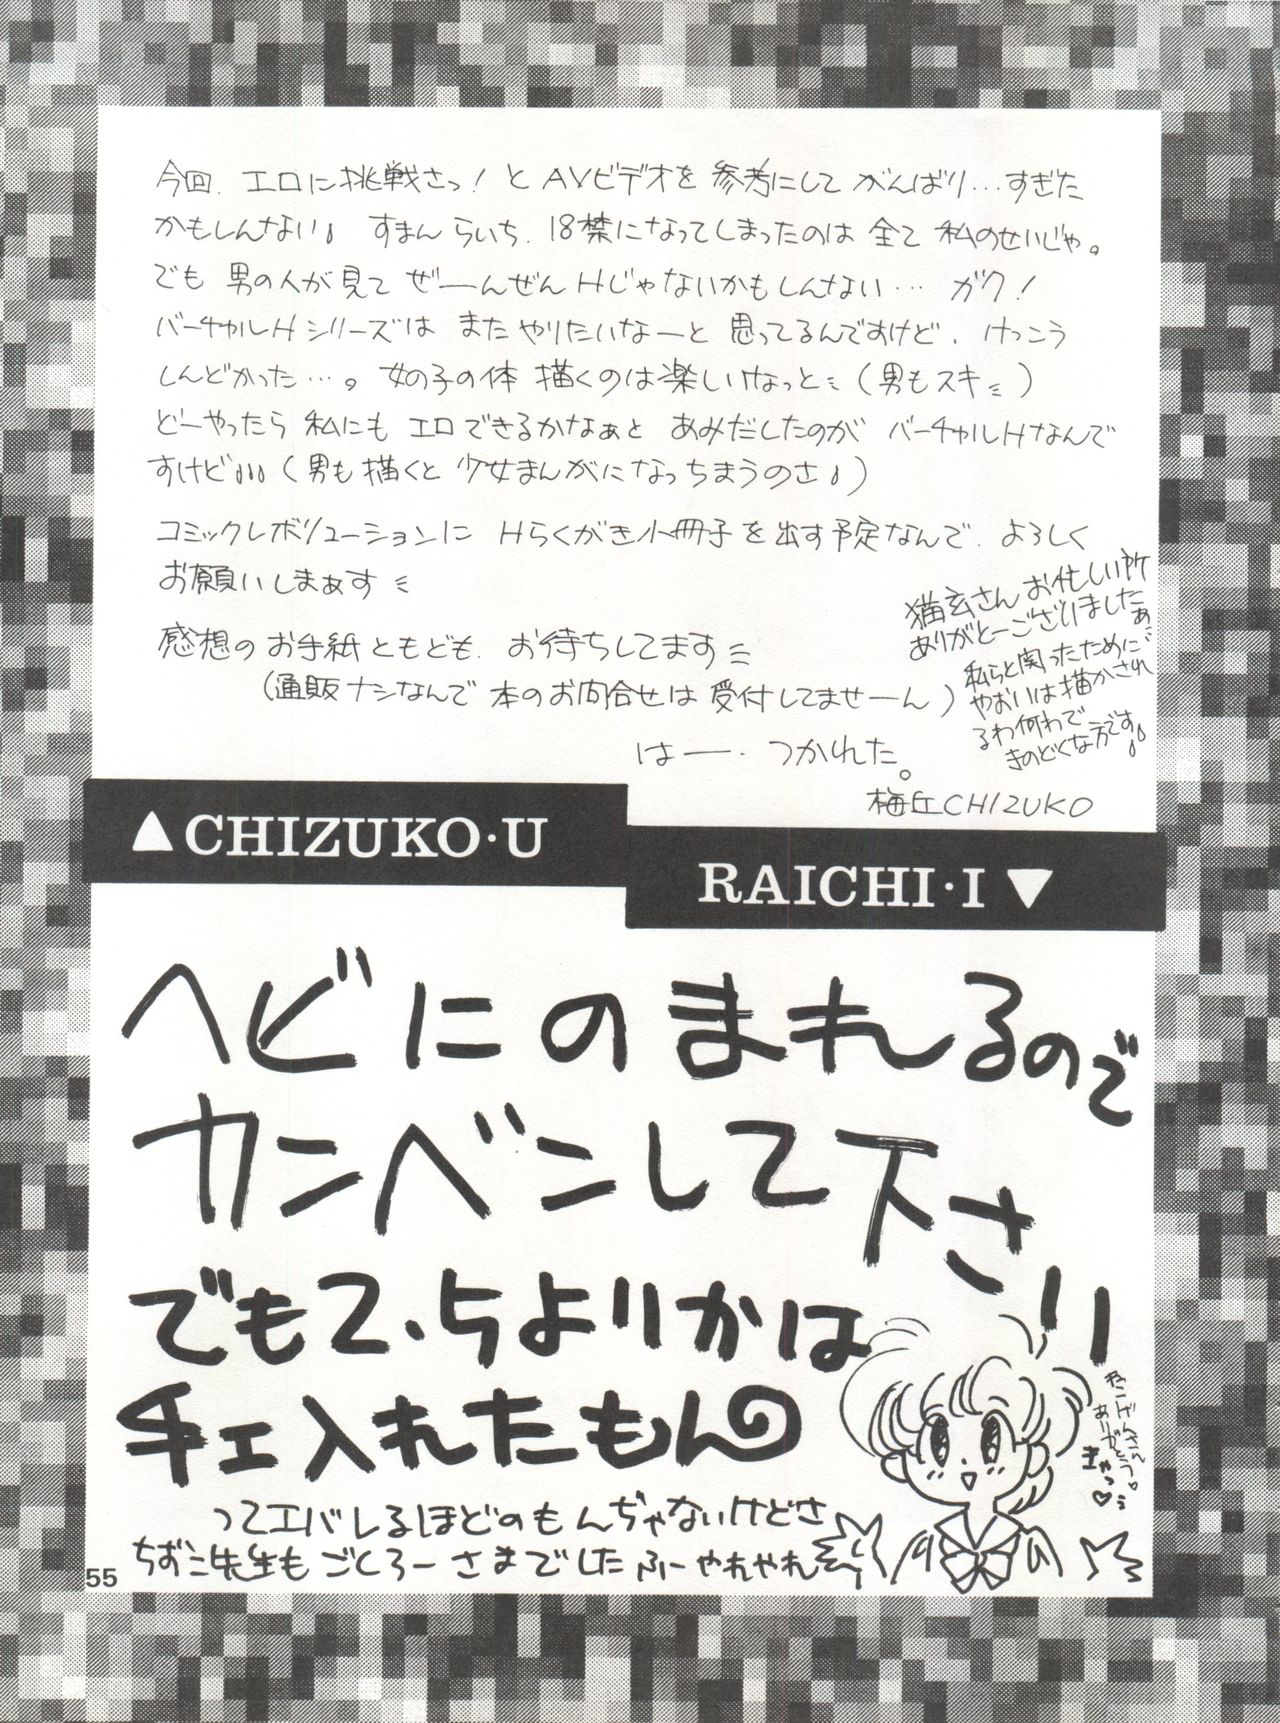 今回、エロに挑戦さっ!とAVビデオを参考にしてがんばり…すぎた
かもしんない すまんらいち、18禁になってしまったのは全て私のせいじゃ。
でも男の人が見てぜーんぜんHじゃないかもしんない… ガク!
バーチャルHシリーズはまたやりたいなーと思ってるんですけど、けっこう
しんどかった…。女の子の体描くのは楽しいなっと(男もスキ)
どーやったら私にもエロできるかなぁとあみだしたのがバーチャルHなんで
すけど(男も描くと少女まんがになっちまうのさ)
コミックレボリューションにHらくがき小冊子を出す予定なんで、よろしく
お願いしまぁす
感想のお手紙ともども、お待ちしてます
(通販ナシなんで本のお問合せは受付してませーん)
はー、つかれた。
梅丘CHIZUKO
猫玄さんお忙しい所
ありがとーございましたぁ
私らと関ったために
やおいは描かされ
るわ何わで
きのどくな方です
▲CHIZUKO・U
RAICHI・I▼
ヘビにのまれるので
カンベンして下さい
でも2.5よりかは
チェ入れたもん
ってエバレるほどのもんぢゃないけどさ
ちずこ先生もごくろーさまでした ふーやれやれ
ねこげんさん
ありがとう♡
きゃっ♡
55